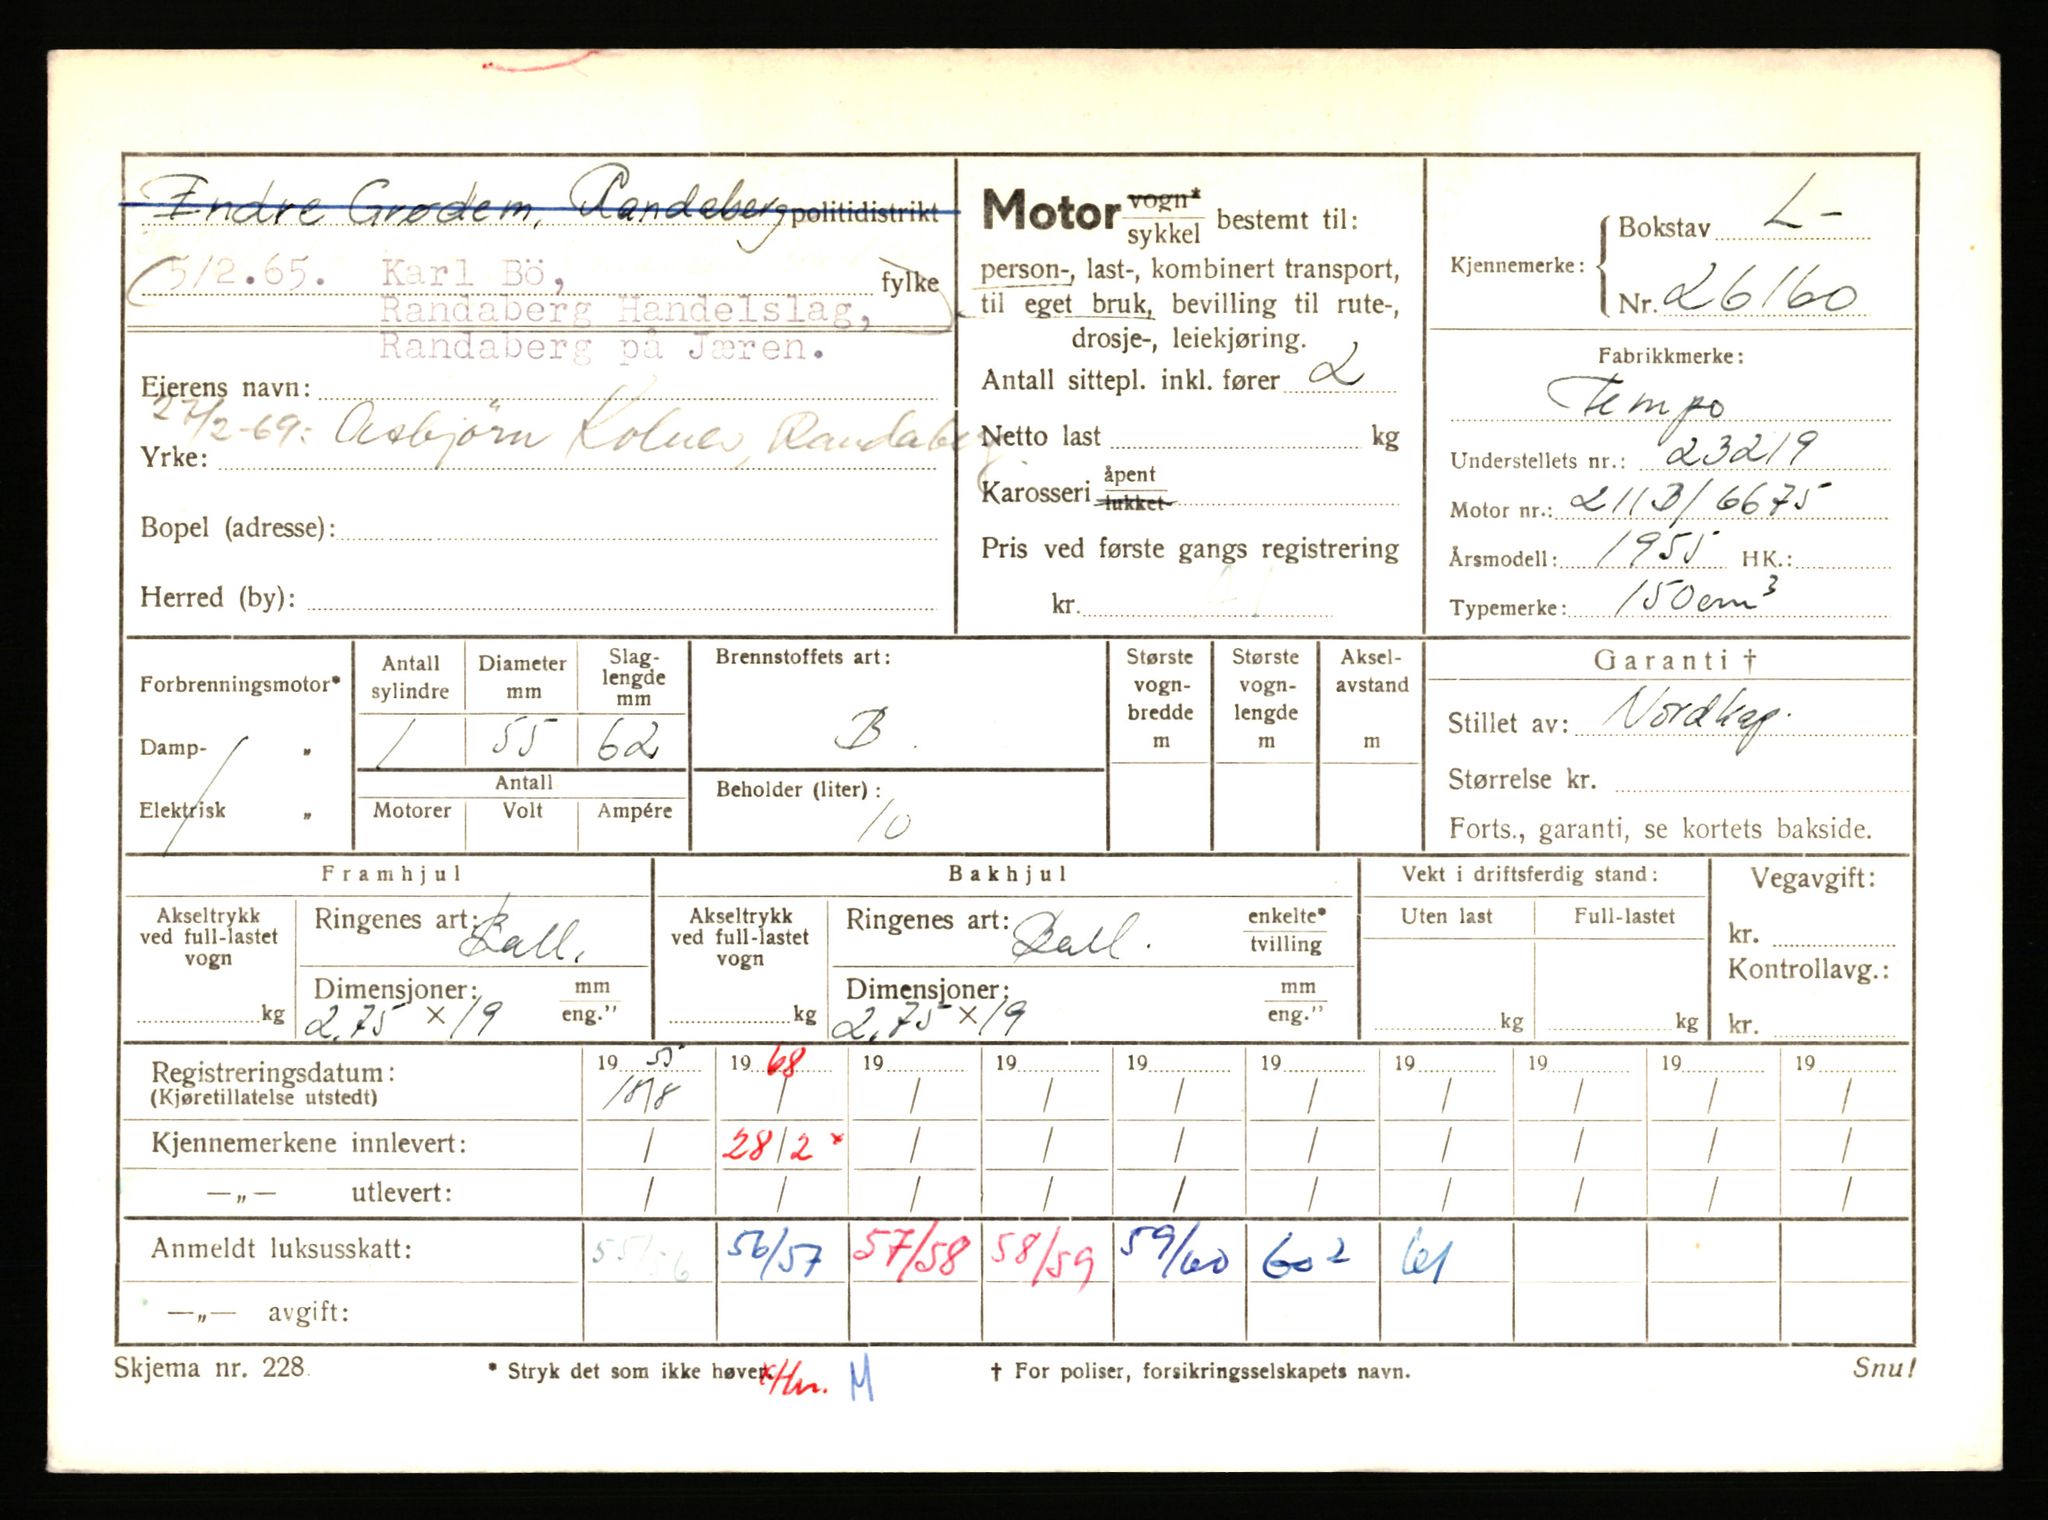 Endre Grødem, Randaberg politidistrikt
5/2.65. Karl Bö, fylke
Randaberg Handelslag,
Randaberg på Jæren.
Eierens navn:
27/2-69: Asbjørn Kolnes, Randaberg
Yrke:
Bopel (adresse):
Herred (by):
Motor vogn* sykkel bestemt til:
person-, last-, kombinert transport,
til eget bruk, bevilling til rute-,
drosje-, leiekjøring.
Antall sittepl. inkl. fører 2
Netto last kg
Karosseri åpent lukket
Pris ved første gangs registrering
kr.
Kjennemerke: Bokstav L-
Nr. 26160
Fabrikkmerke:
Tempo
Understellets nr.: 23219
Motor nr.: 211B/6675
Årsmodell: 1955 HK.:
Typemerke: 150 cm³
Forbrenningsmotor*
Damp- „
Elektrisk „
Antall sylindre 1
Diameter mm 55
Slag-lengde mm 62
Antall
Motorer Volt Ampére
Brennstoffets art:
B.
Beholder (liter):
10
Største vogn-bredde m
Største vogn-lengde m
Aksel-avstand m
Garanti †
Stillet av: Nordkap.
Størrelse kr.
Forts., garanti, se kortets bakside.
Framhjul
Akseltrykk ved full-lastet vogn
kg
Ringenes art: Ball.
Dimensjoner: mm
2,75 × 19 eng."
Bakhjul
Akseltrykk ved full-lastet vogn
kg
Ringenes art: Ball. enkelte* tvilling
Dimensjoner: mm
2,75 × 19 eng."
Vekt i driftsferdig stand:
Uten last Full-lastet
kg kg
Vegavgift:
kr.
Kontrollavg.:
kr.
Registreringsdatum: 1955 1968 19 19 19 19 19 19 19 19
(Kjøretillatelse utstedt) 18/8 / / / / / / / / /
Kjennemerkene innlevert: / 28/2 * / / / / / / / /
—„— utlevert: / / / / / / / / / /
Anmeldt luksusskatt: 55/56 56/57 57/58 58/59 59/60 60² 61
—„— avgift:
Skjema nr. 228. * Stryk det som ikke høver. *Hn. M † For poliser, forsikringsselskapets navn. Snu!